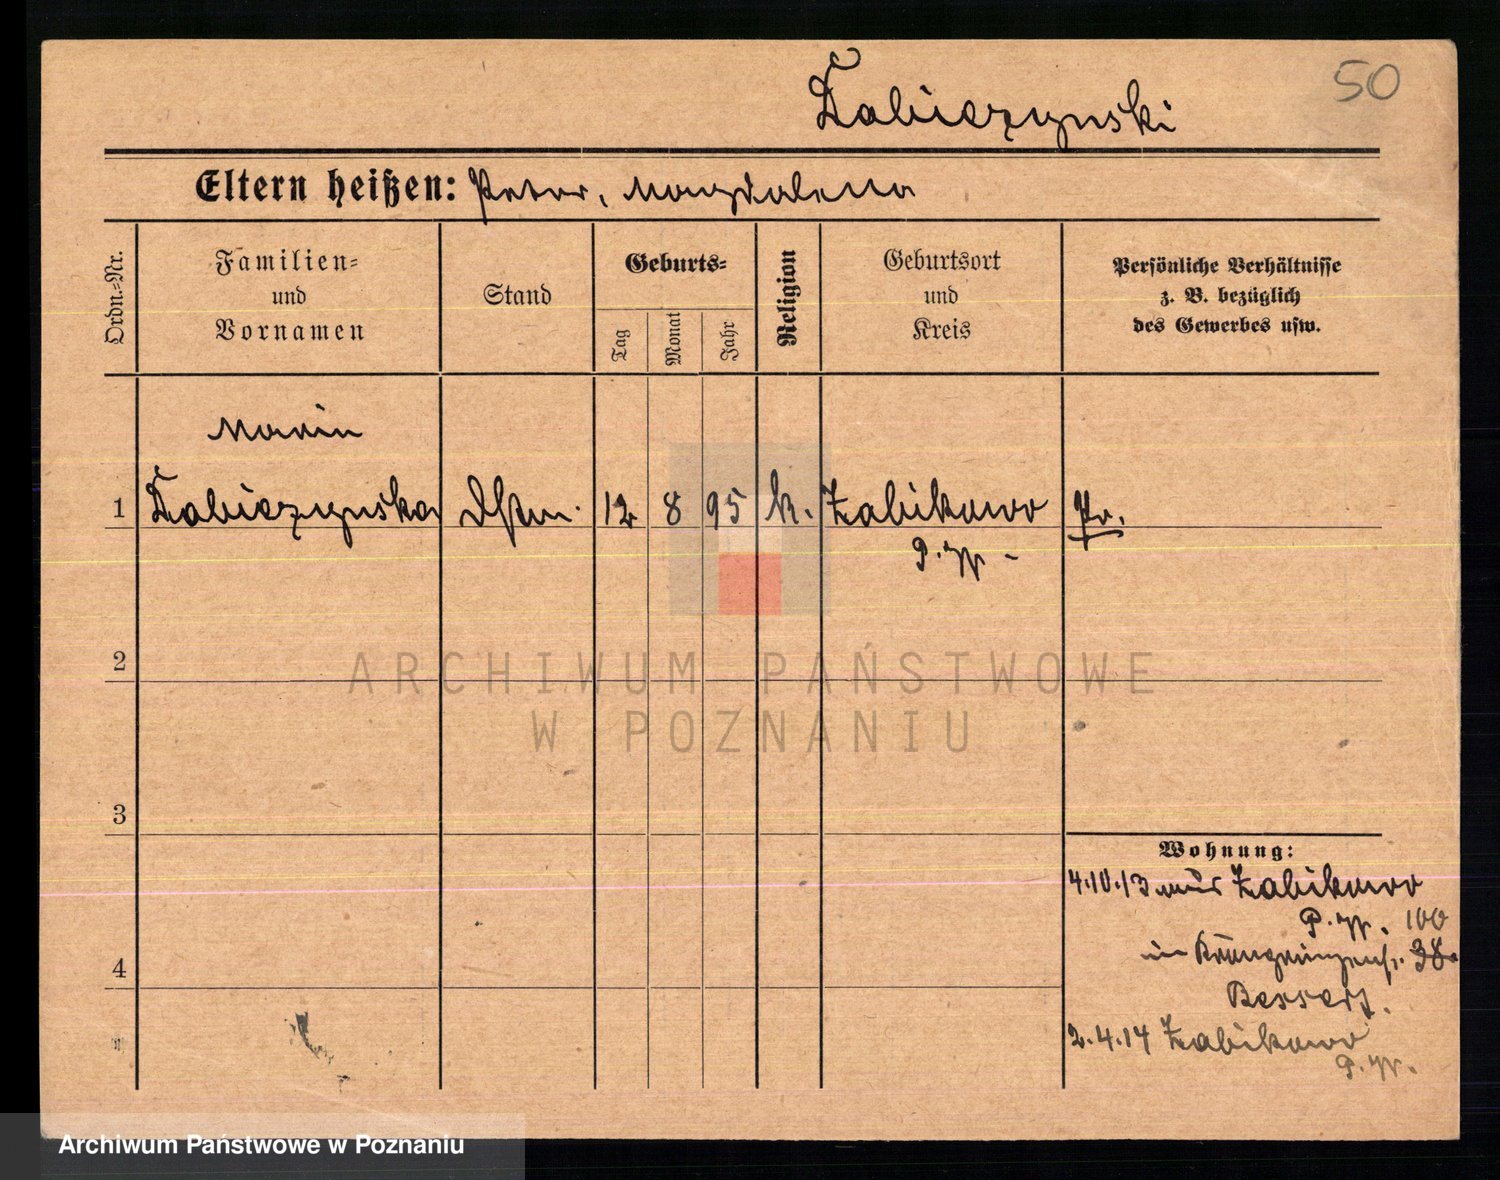 50
Eltern heißen: Peter, Magdalena
Ordn.-Nr.
Familien-
und
Vornamen
Stand
Geburts-
Tag
Monat
Jahr
Religion
Geburtsort
und
Kreis
Persönliche Verhältnisse
z. B. bezüglich
des Gewerbes usw.
Marie
1 12 8 95 k. Zabikowo Pr.
P. W.
2
3
4
Wohnung:
4.10.13 aus Zabikowo
P. W. 100
in Kronprinzenstr. 38a
Bessert.
2.4.14 Zabikowo
P. W.
ARCHIWUM PAŃSTWOWE
W POZNANIU
Archiwum Państwowe w Poznaniu